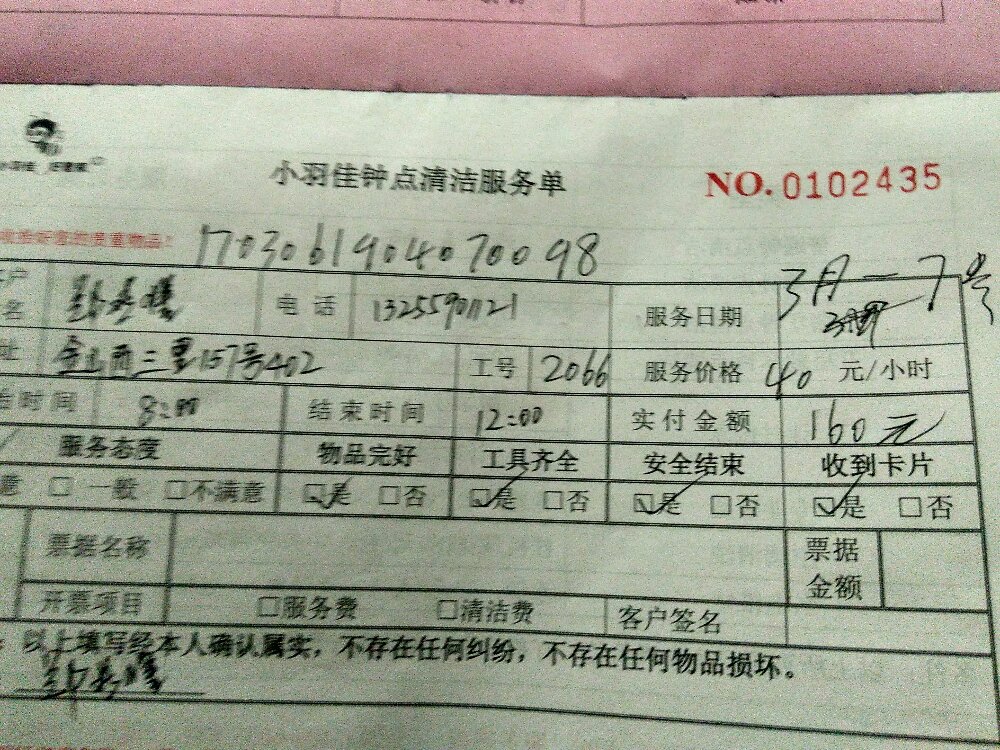 小羽佳钟点清洁服务单 NO.0102435
1703061904070098
名 电话 13255901121 服务日期 3月一7号
址 金山西二里157号402 工号 2066 服务价格 40 元/小时
时间 8:00 结束时间 12:00 实付金额 160元
服务态度 物品完好 工具齐全 安全结束 收到卡片
意 □一般 □不满意 ☑是 □否 ☑是 □否 ☑是 □否 ☑是 □否
票据名称 票据金额
开票项目 □服务费 □清洁费 客户签名
以上填写经本人确认属实，不存在任何纠纷，不存在任何物品损坏。